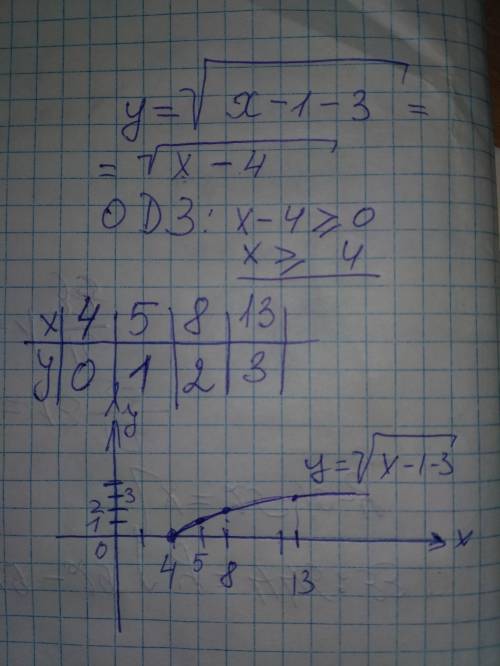 y=√x-1-3 =
= √x-4
ОДЗ: x-4⩾0
x⩾ 4
x 4 5 8 13
y 0 1 2 3
y
y=√x-1-3
3
2
1
0 x
4 5 8 13